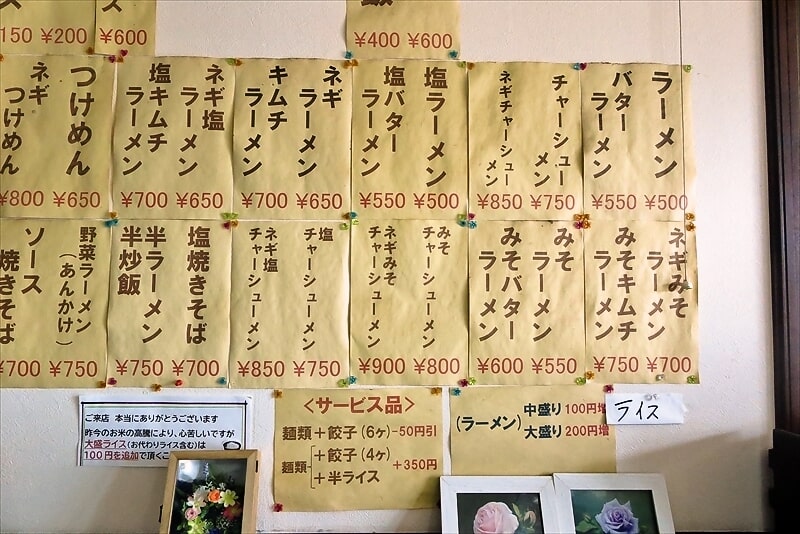 ¥600
¥400
¥200
¥600
ラーメン
¥500
バターラーメン
¥550
チャーシューメン
¥750
ネギチャーシューメン
¥850
塩ラーメン
¥500
塩バターラーメン
¥550
ネギラーメン
¥650
キムチラーメン
¥700
ネギ塩ラーメン
¥650
塩キムチラーメン
¥700
つけめん
¥650
ネギつけめん
¥800
ネギみそラーメン
¥700
みそキムチラーメン
¥750
みそラーメン
¥550
みそバターラーメン
¥600
みそチャーシューメン
¥800
ネギみそチャーシューメン
¥900
塩チャーシューメン
¥750
ネギ塩チャーシューメン
¥850
塩焼きそば
¥700
半ラーメン半炒飯
¥750
野菜ラーメン(あんかけ)
¥750
ソース焼きそば
¥700
ご来店 本当にありがとうございます
昨今のお米の高騰により、心苦しいですが
大盛ライス(お代わりライス含む)は
100円を追加で頂くこ
<サービス品>
麺類+餃子(6ヶ)−50円引
麺類 +餃子(4ヶ)
+半ライス
+350円
(ラーメン)
中盛り100円増
大盛り200円増
ライス